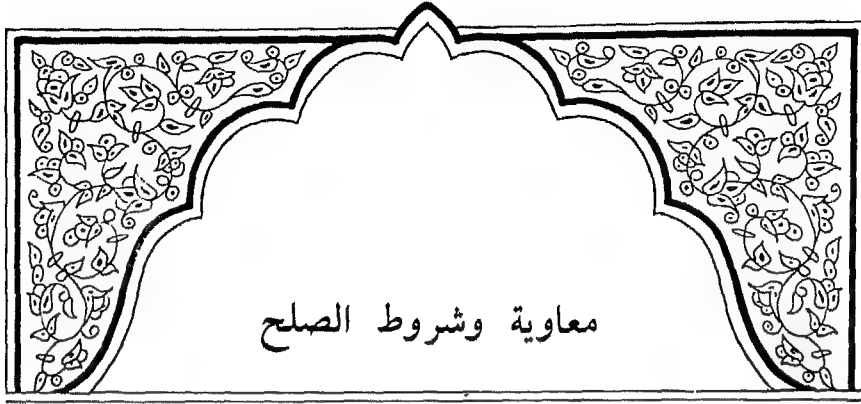 معاوية وشروط الصلح